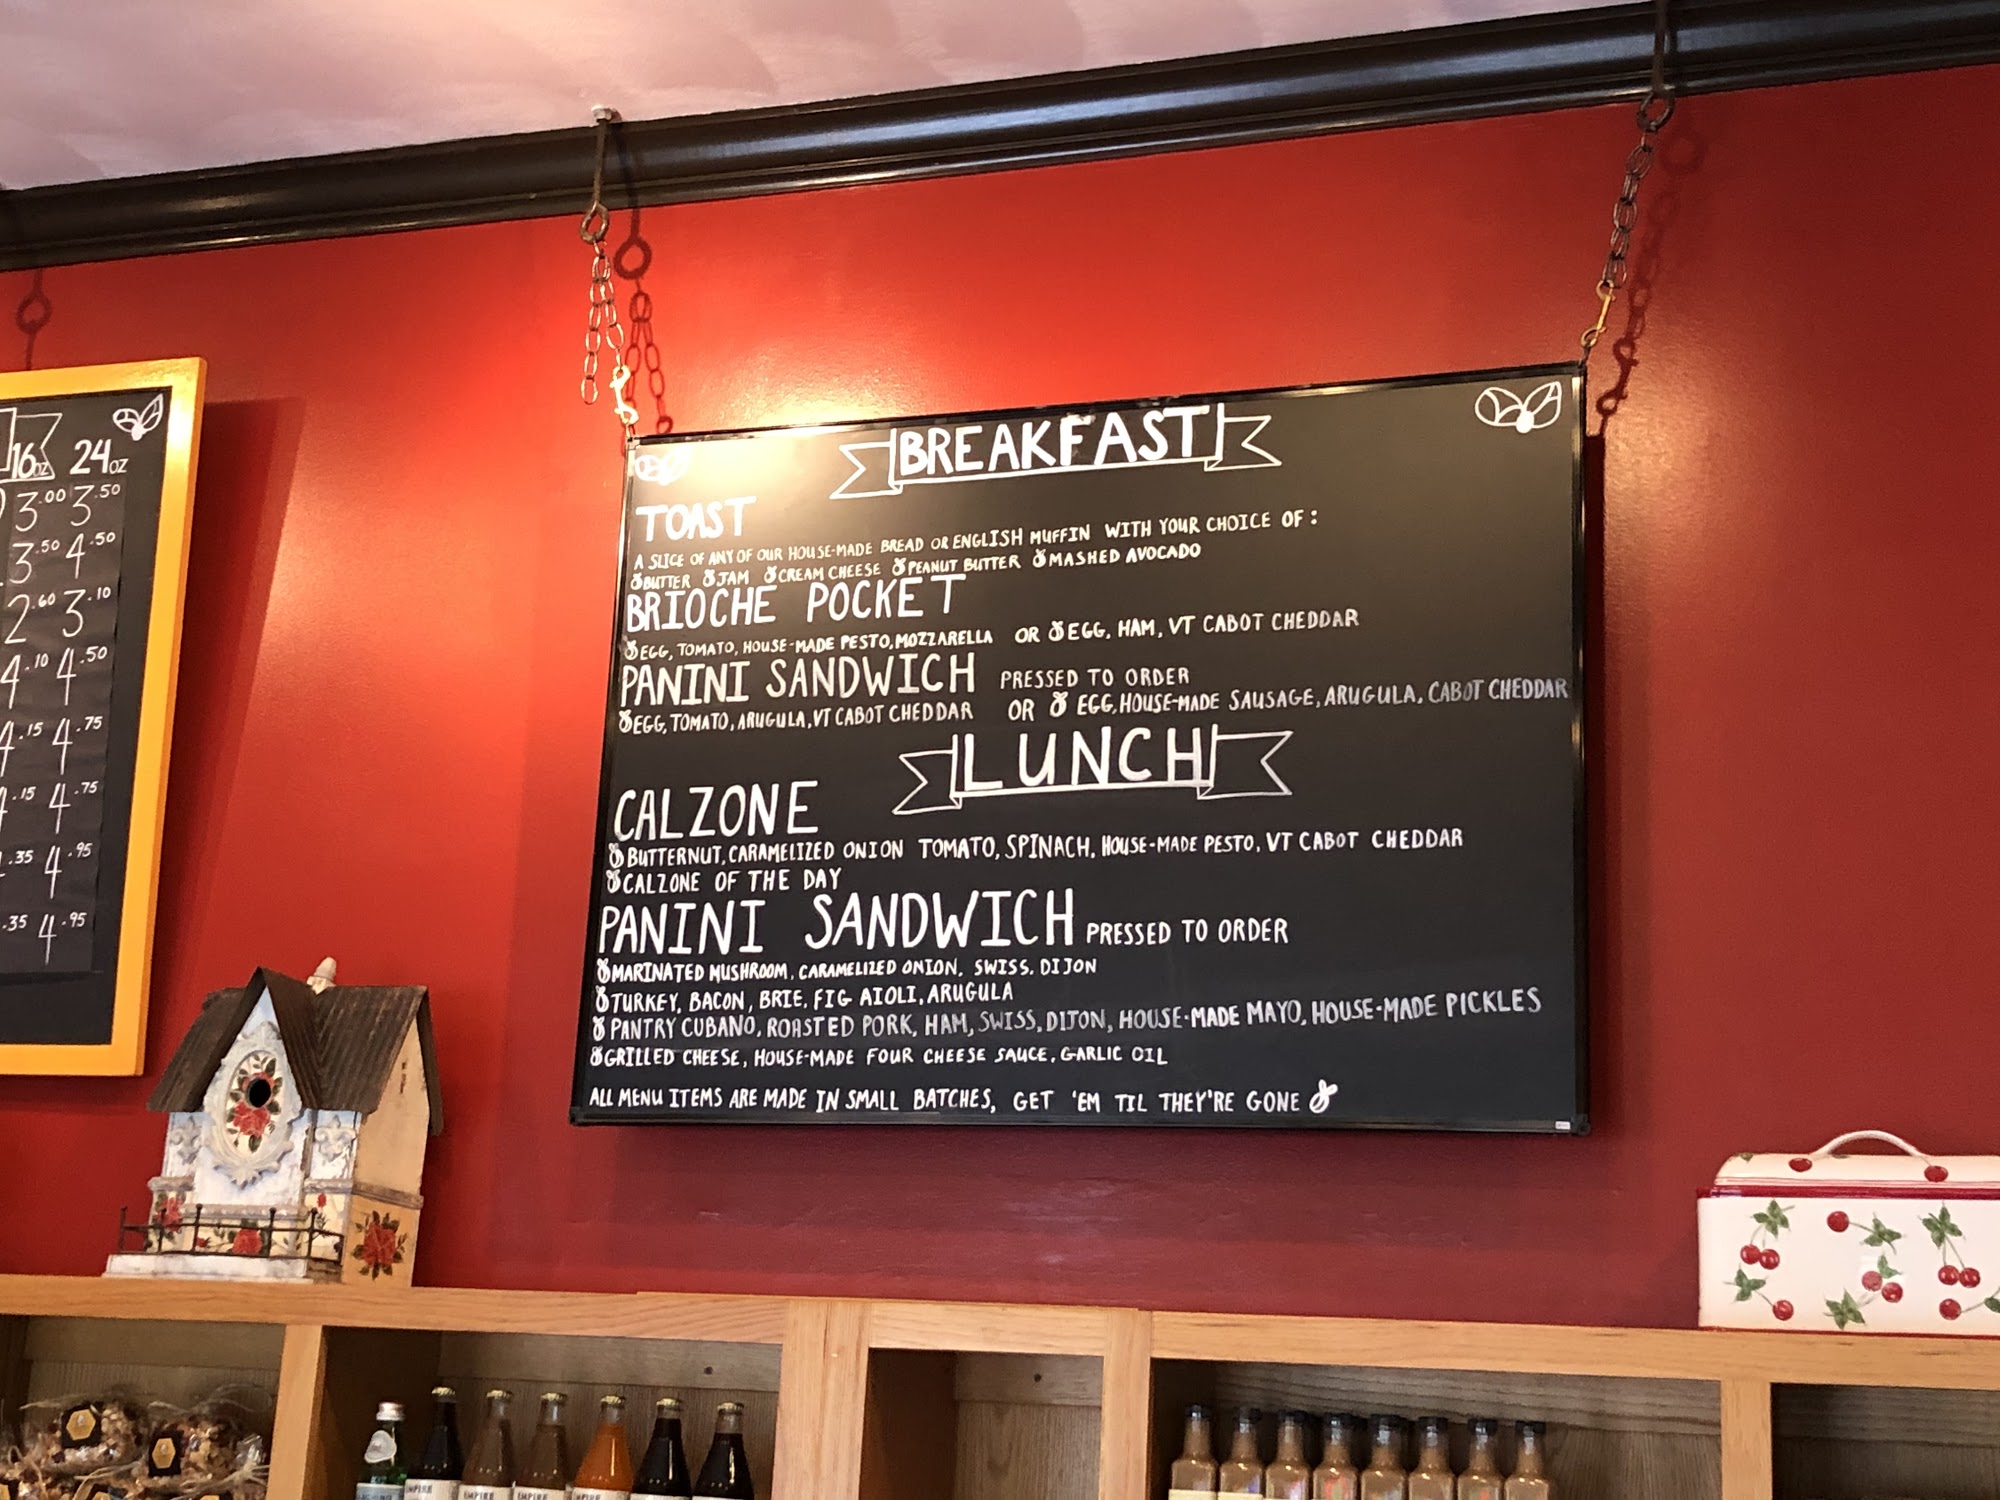 16oz 24oz
3.00 3.50
3.50 4.50
2.60 3.10
4.10 4.50
4.15 4.75
.15 4.75
.35 4.95
.35 4.95
BREAKFAST
TOAST
A SLICE OF ANY OF OUR HOUSE-MADE BREAD OR ENGLISH MUFFIN WITH YOUR CHOICE OF:
BUTTER JAM CREAM CHEESE PEANUT BUTTER SMASHED AVOCADO
BRIOCHE POCKET
EGG, TOMATO, HOUSE-MADE PESTO, MOZZARELLA OR EGG, HAM, VT CABOT CHEDDAR
PANINI SANDWICH PRESSED TO ORDER
EGG, TOMATO, ARUGULA, VT CABOT CHEDDAR OR EGG, HOUSE-MADE SAUSAGE, ARUGULA, CABOT CHEDDAR
LUNCH
CALZONE
BUTTERNUT, CARAMELIZED ONION TOMATO, SPINACH, HOUSE-MADE PESTO, VT CABOT CHEDDAR
CALZONE OF THE DAY
PANINI SANDWICH PRESSED TO ORDER
MARINATED MUSHROOM, CARAMELIZED ONION, SWISS, DIJON
TURKEY, BACON, BRIE, FIG AIOLI, ARUGULA
PANTRY CUBANO, ROASTED PORK, HAM, SWISS, DIJON, HOUSE-MADE MAYO, HOUSE-MADE PICKLES
GRILLED CHEESE, HOUSE-MADE FOUR CHEESE SAUCE, GARLIC OIL
ALL MENU ITEMS ARE MADE IN SMALL BATCHES, GET 'EM TIL THEY'RE GONE
EMPIRE EMPIRE EMPIRE